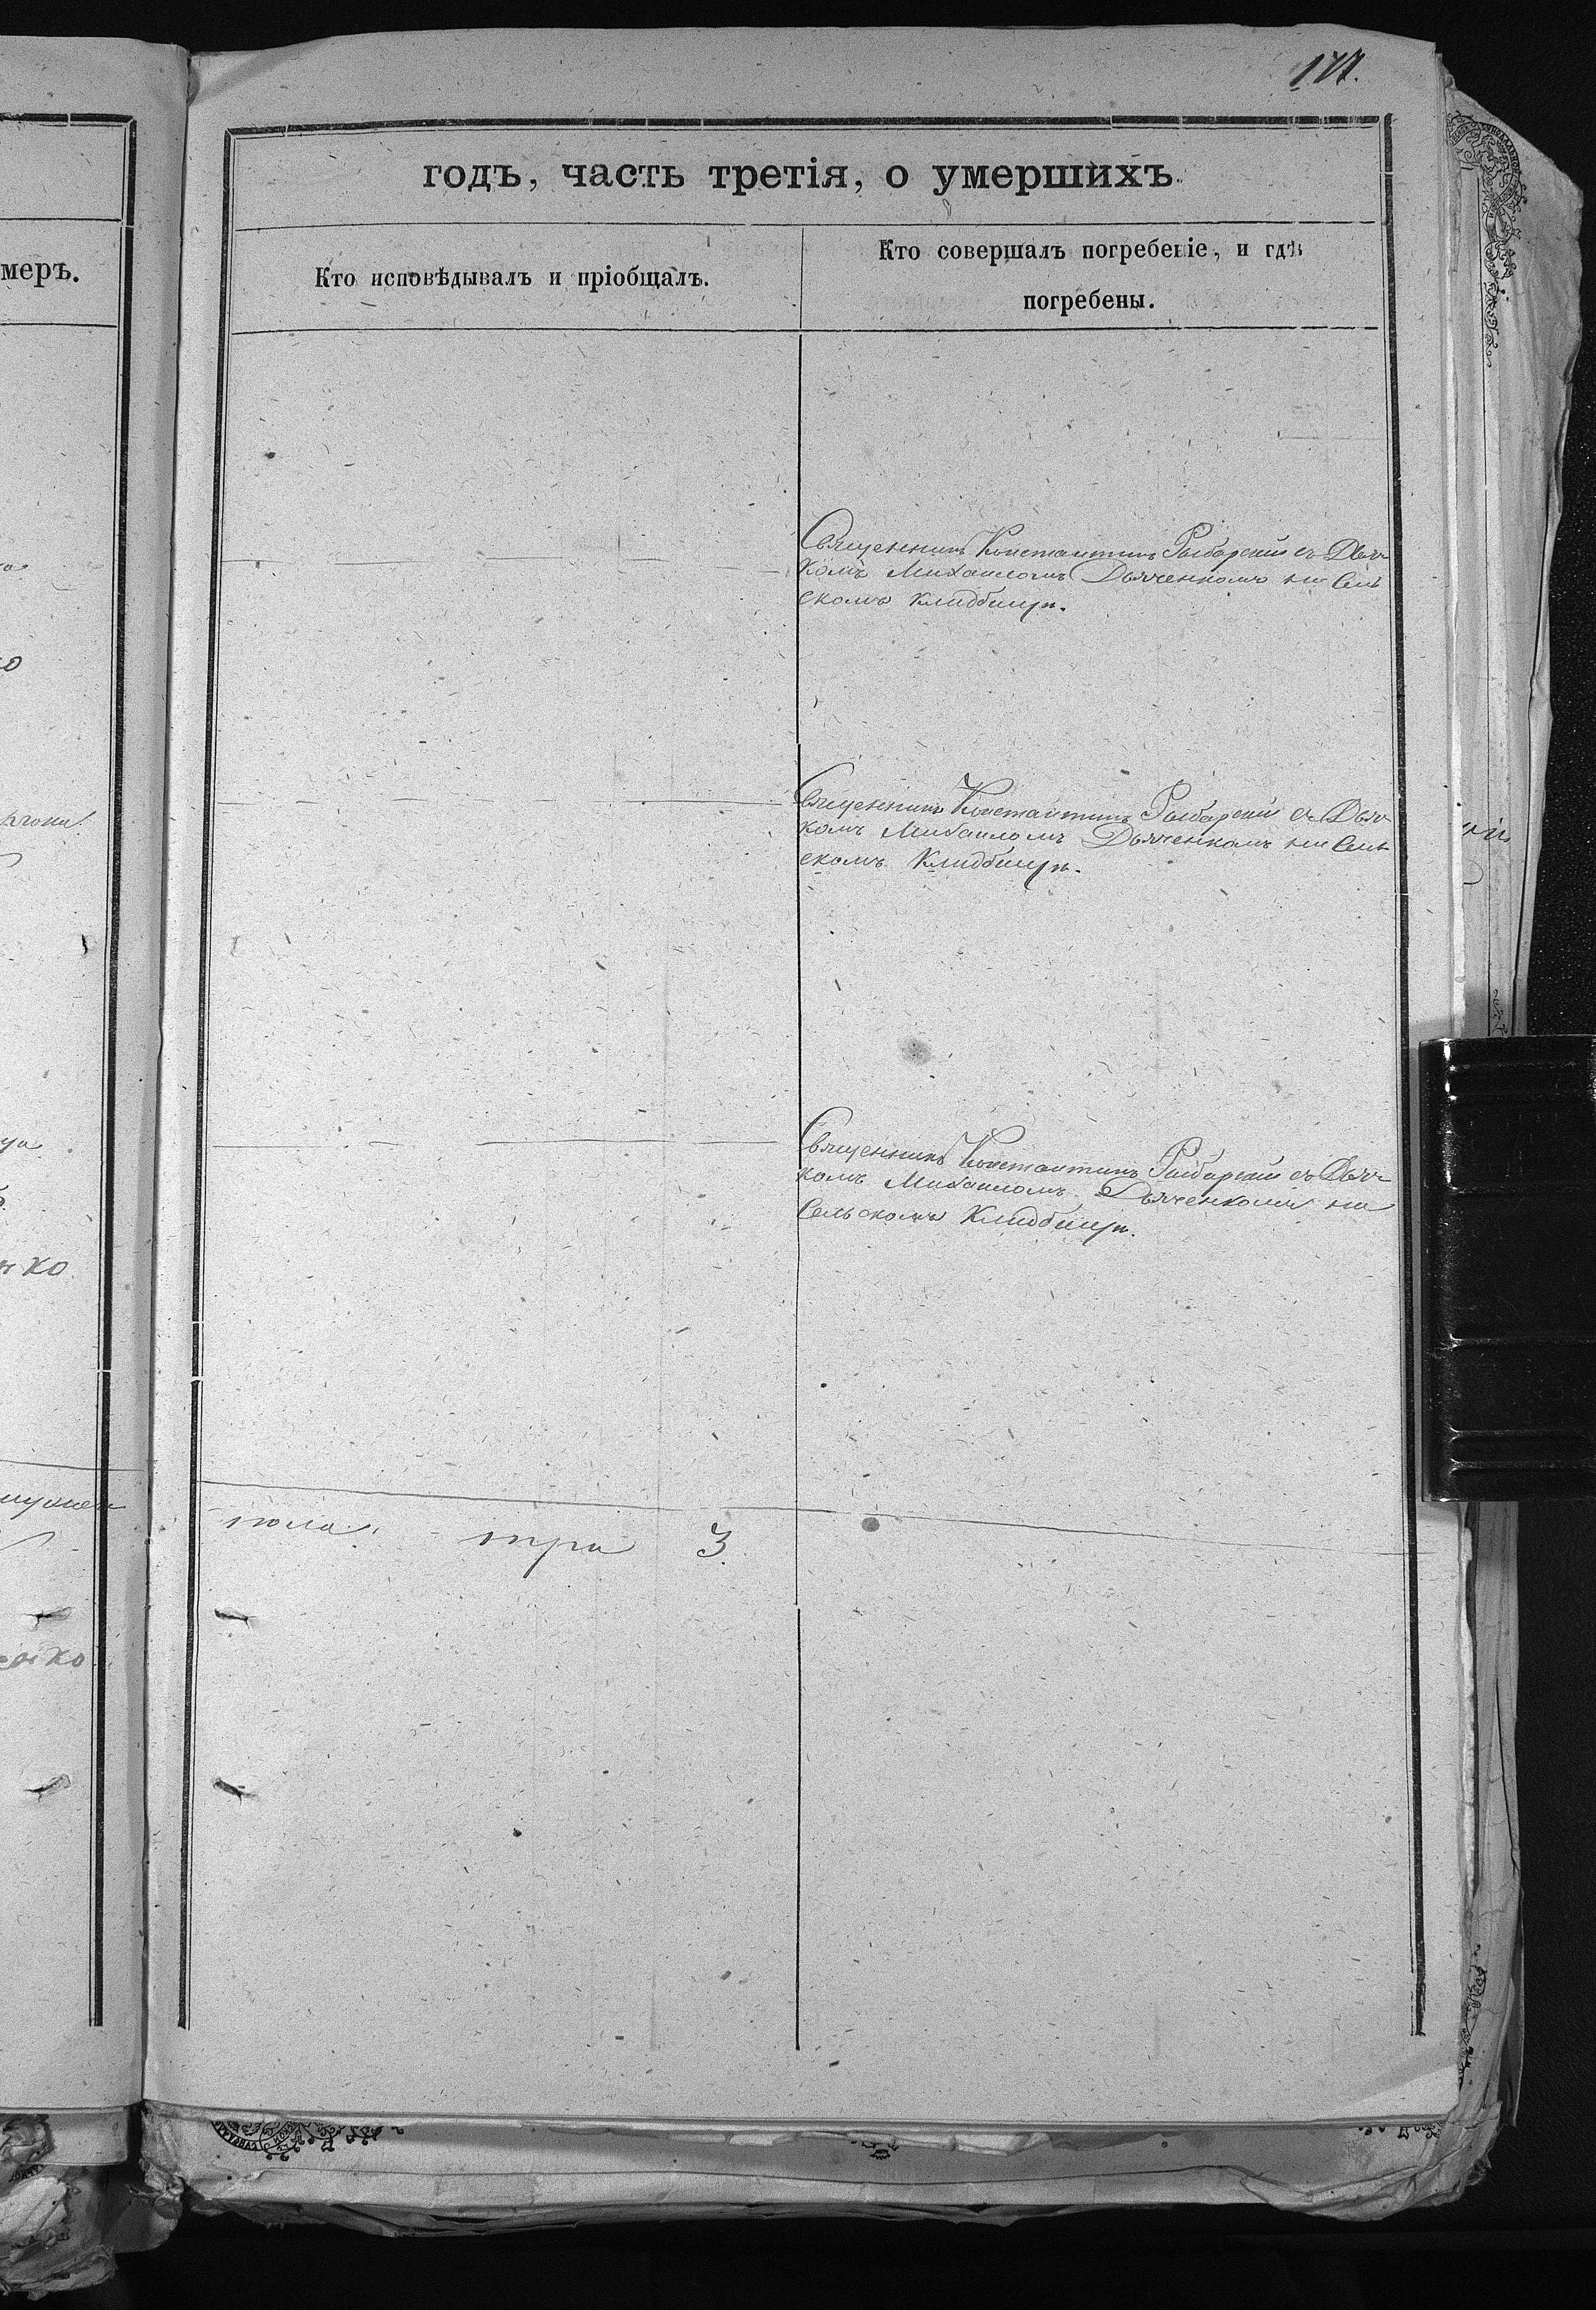 177.
годъ, часть третія, о умершихъ
меръ.
Кто исповѣдывалъ и пріобщалъ.
Кто совершалъ погребеніе, и гдѣ
погребены.
Священникъ Константинъ съ Дьяч
комъ Михаиломъ Дьяченкомъ на Сель
скомъ Кладбищѣ.
Священникъ Константинъ съ Дьяч
комъ Михаиломъ Дьяченкомъ на Сель
скомъ Кладбищѣ.
Священникъ Константинъ съ Дьяч
комъ Михаиломъ Дьяченкомъ на
Сельскомъ Кладбищѣ.
нко
пола три 3
енко